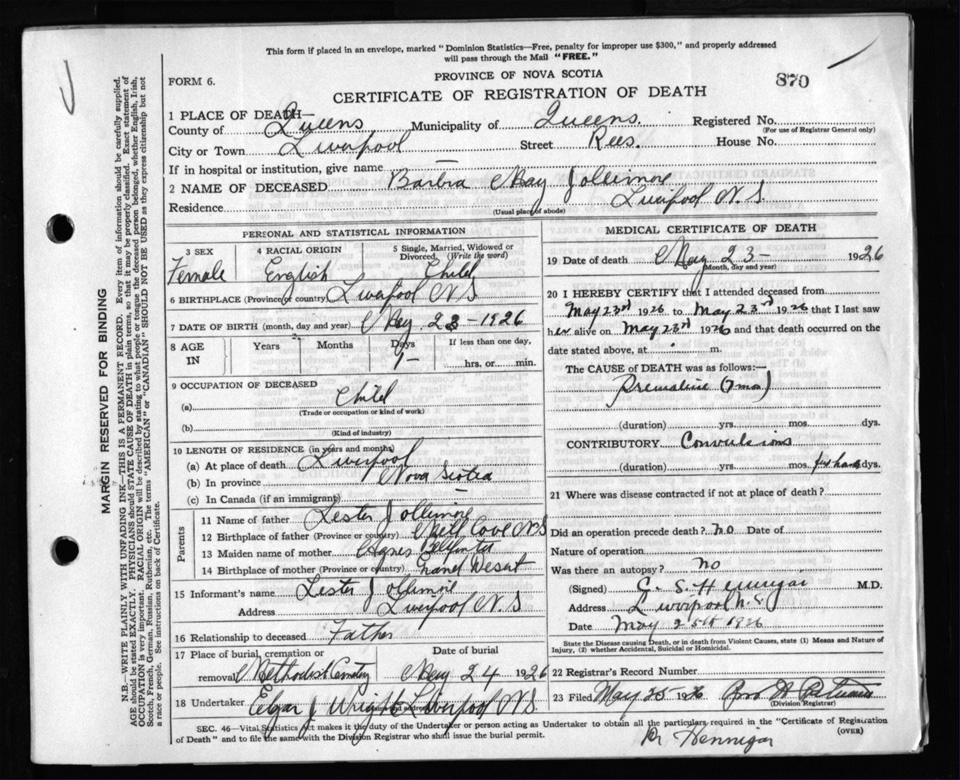 This form if placed in an envelope, marked "Dominion Statistics—Free, penalty for improper use $300," and properly addressed
will pass through the Mail "FREE."
FORM 6.
PROVINCE OF NOVA SCOTIA
870
CERTIFICATE OF REGISTRATION OF DEATH
1 PLACE OF DEATH—
County of Queens Municipality of Queens Registered No.
(For use of Registrar General only)
City or Town Liverpool Street Rees. House No.
If in hospital or institution, give name —
2 NAME OF DECEASED Barbra May Jollimore
Residence Liverpool N.S
(Usual place of abode)
PERSONAL AND STATISTICAL INFORMATION
3 SEX 4 RACIAL ORIGIN 5 Single, Married, Widowed or Divorced (Write the word)
Female English Child
6 BIRTHPLACE (Province or country) Liverpool N S
7 DATE OF BIRTH (month, day and year) May 23-1926
8 AGE IN Years Months Days If less than one day,
hrs. or min.
9 OCCUPATION OF DECEASED
(a) Child
(Trade or occupation or kind of work)
(b)
(Kind of industry)
10 LENGTH OF RESIDENCE (in years and months)
(a) At place of death Liverpool
(b) In province Nova Scotia
(c) In Canada (if an immigrant) —
Parents
11 Name of father Lester Jollimore
12 Birthplace of father (Province or country) Mill Cove N S
13 Maiden name of mother Agnes
14 Birthplace of mother (Province or country)
15 Informant's name Lester Jollimore
Address Liverpool N.S
16 Relationship to deceased Father
17 Place of burial, cremation or removal Methodist Cemetery
Date of burial May 24 1926
18 Undertaker Edgar J Wright Liverpool N S
MEDICAL CERTIFICATE OF DEATH
19 Date of death May 23- 1926
(Month, day and year)
20 I HEREBY CERTIFY that I attended deceased from
May 23rd 1926 to May 23rd 1926 that I last saw
her alive on May 23rd 1926 and that death occurred on the
date stated above, at m.
The CAUSE of DEATH was as follows:—
(7 mos)
(duration) yrs. mos. dys.
CONTRIBUTORY Convulsions
(duration) yrs. mos. dys.
21 Where was disease contracted if not at place of death?
Did an operation precede death? no Date of
Nature of operation
Was there an autopsy? no
(Signed) C. S. Hennigar M.D.
Address Liverpool N.S.
Date May 25th 1926
State the Disease causing Death, or in death from Violent Causes, state (1) Means and Nature of
Injury, (2) whether Accidental, Suicidal or Homicidal.
22 Registrar's Record Number
23 Filed May 25 1926
(Division Registrar)
SEC. 46—Vital Statistics Act makes it the duty of the Undertaker or person acting as Undertaker to obtain all the particulars required in the "Certificate of Registration
of Death" and to file the same with the Division Registrar who shall issue the burial permit.
(OVER)
Dr Hennigar
MARGIN RESERVED FOR BINDING
N.B.—WRITE PLAINLY WITH UNFADING INK—THIS IS A PERMANENT RECORD. Every item of information should be carefully supplied.
AGE should be stated EXACTLY. PHYSICIANS should STATE CAUSE OF DEATH in plain terms, so that it may be properly classified. Exact statement of
OCCUPATION is very important. RACIAL ORIGIN will be described by stating to what people or tongue the deceased person belonged, whether English, Irish,
Scotch, French, German, Russian, Ruthenian, etc. The terms "AMERICAN" or "CANADIAN" SHOULD NOT BE USED as they express citizenship but not
a race or people. See instructions on back of Certificate.